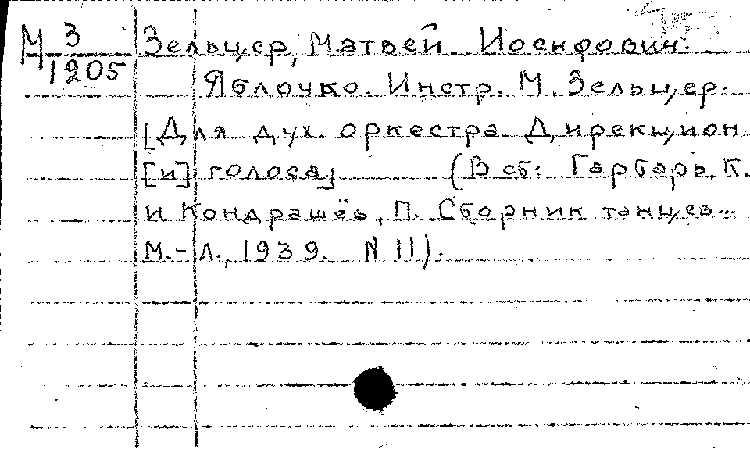 М 3/1205
Зельцер, Матвей Иосифович.
Яблочко. Инстр. М. Зельцер.
[Для дух. оркестра. Дирекцион
[и] голоса] (В сб: Гарбарь, К.
и Кондрашёв, П. Сборник танцев.
М.-Л., 1939. N 11).